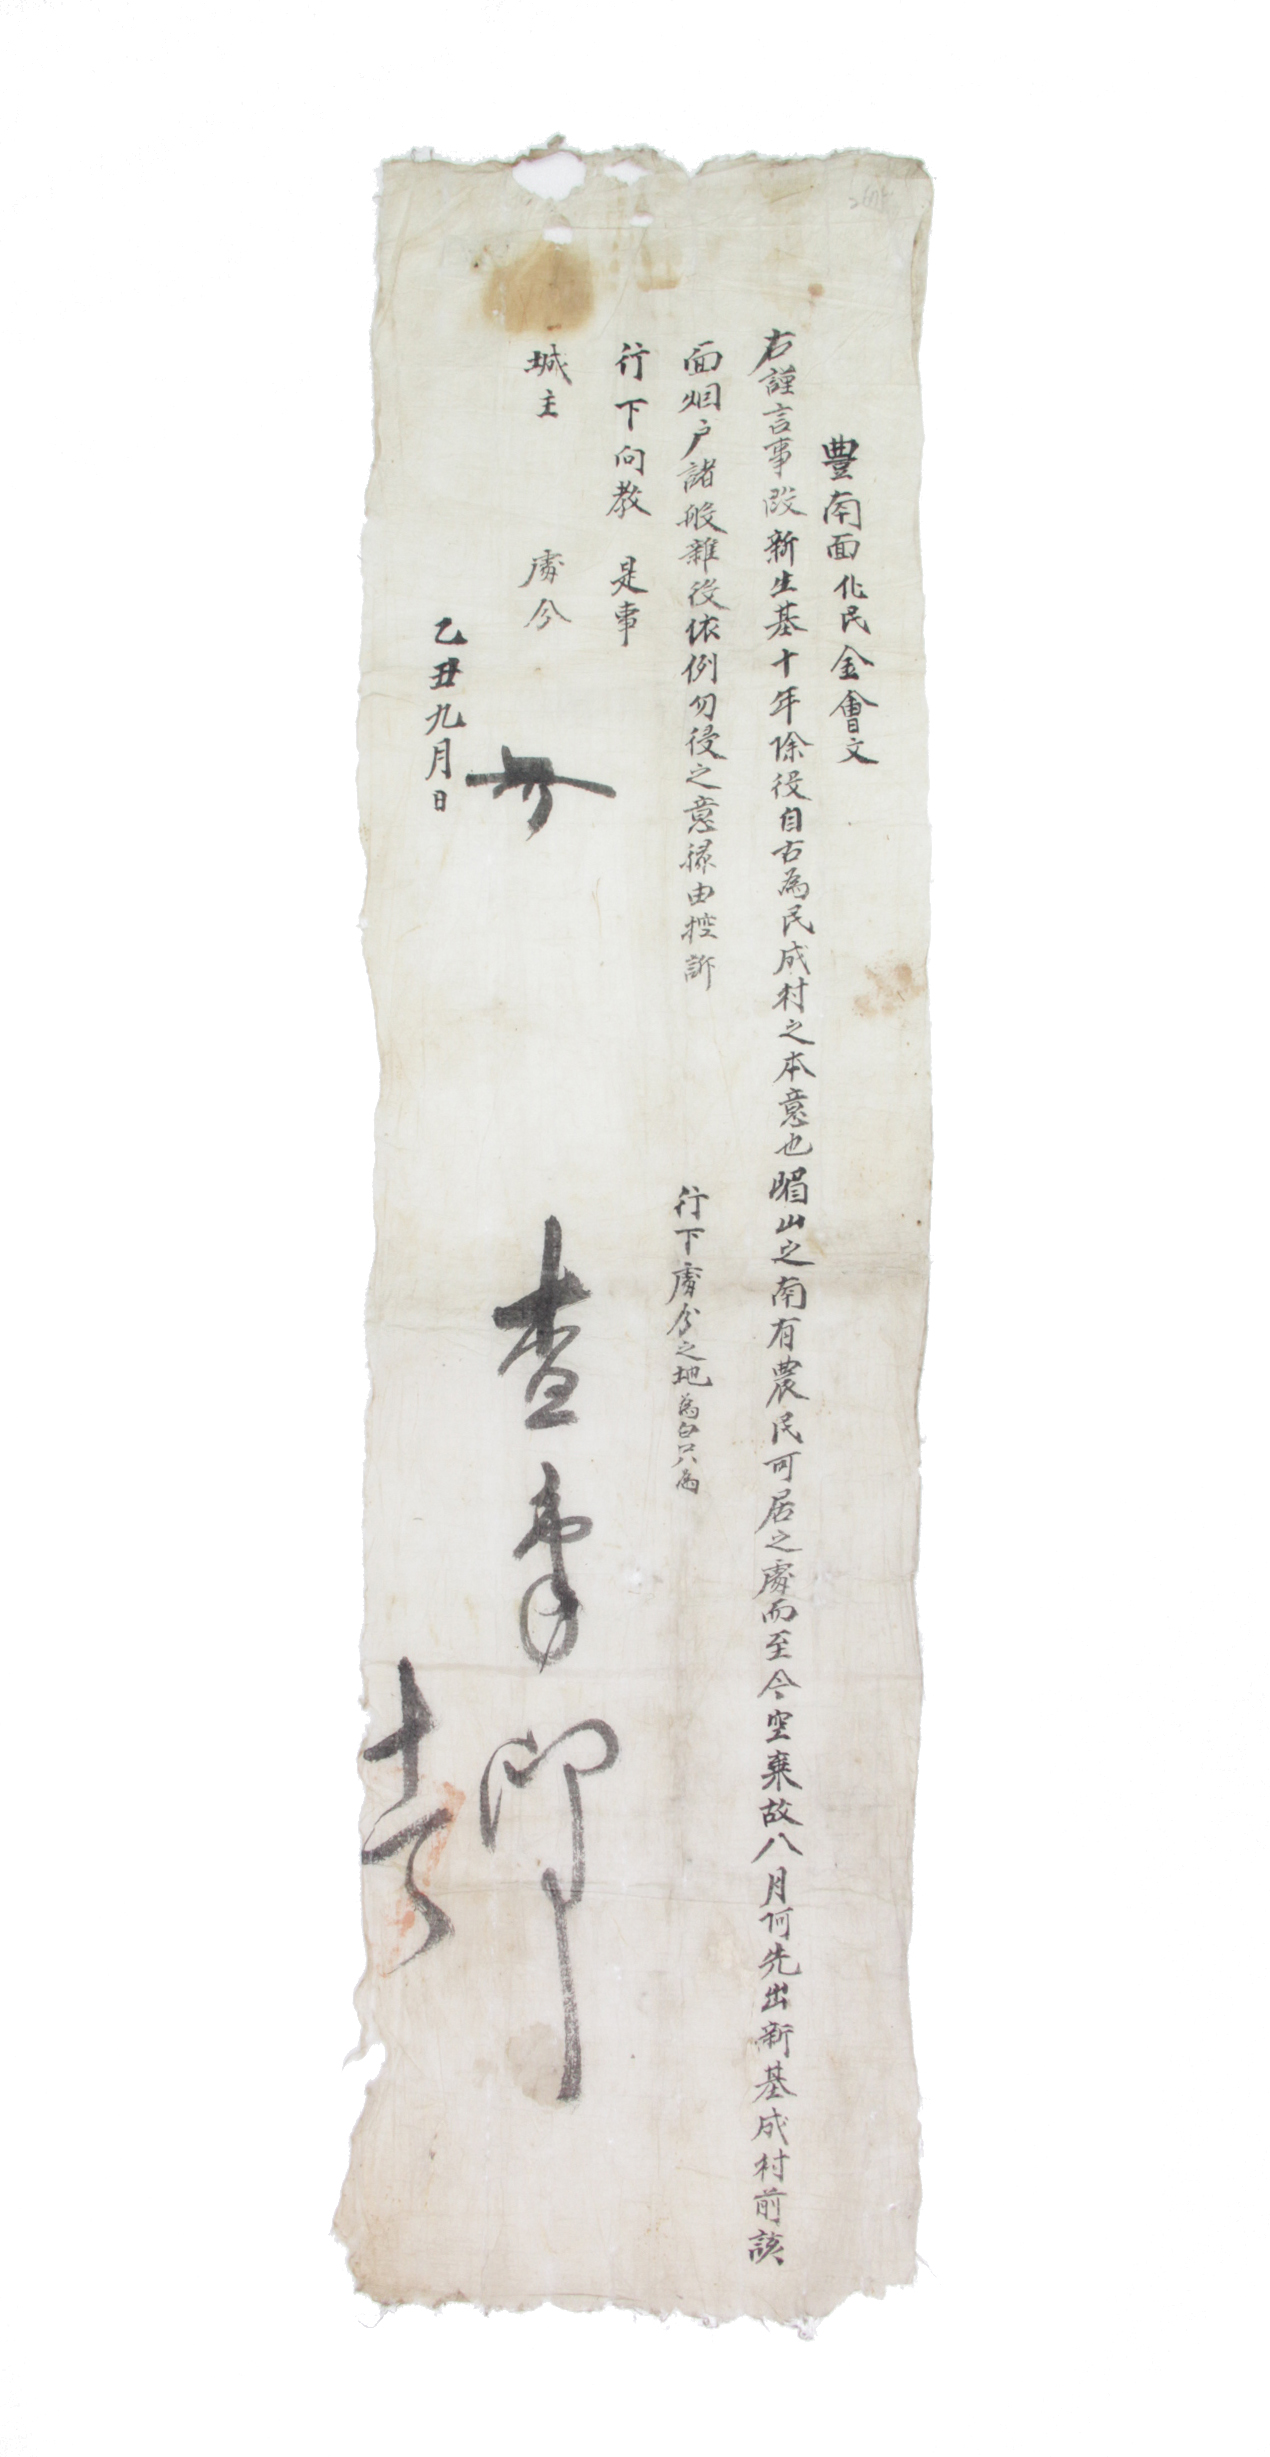 豊南面化民金會文
右謹言事段新生基十年除役自古為民成村之本意也嵋山之南有農民可居之處而至今空棄故八月何先出新基成村前該
面烟户諸般雜役依例勿侵之意緣由控訴
行下處分之地為白只為
行下向教 是事
城主 處分
乙丑九月日
查事
十